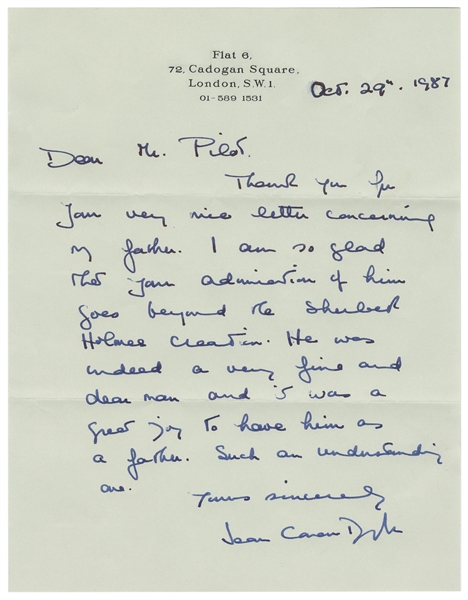 Flat 6,
72, Cadogan Square,
London, S.W.1.
01-589 1531
Oct. 29th. 1987
Dear Mr. Pilot.
Thank you for
your very nice letter concerning
my father. I am so glad
that your admiration of him
goes beyond the Sherlock
Holmes creation. He was
indeed a very fine and
dear man and it was a
great joy to have him as
a father. Such an understanding
one.
Yours sincerely
Jean Conan Doyle